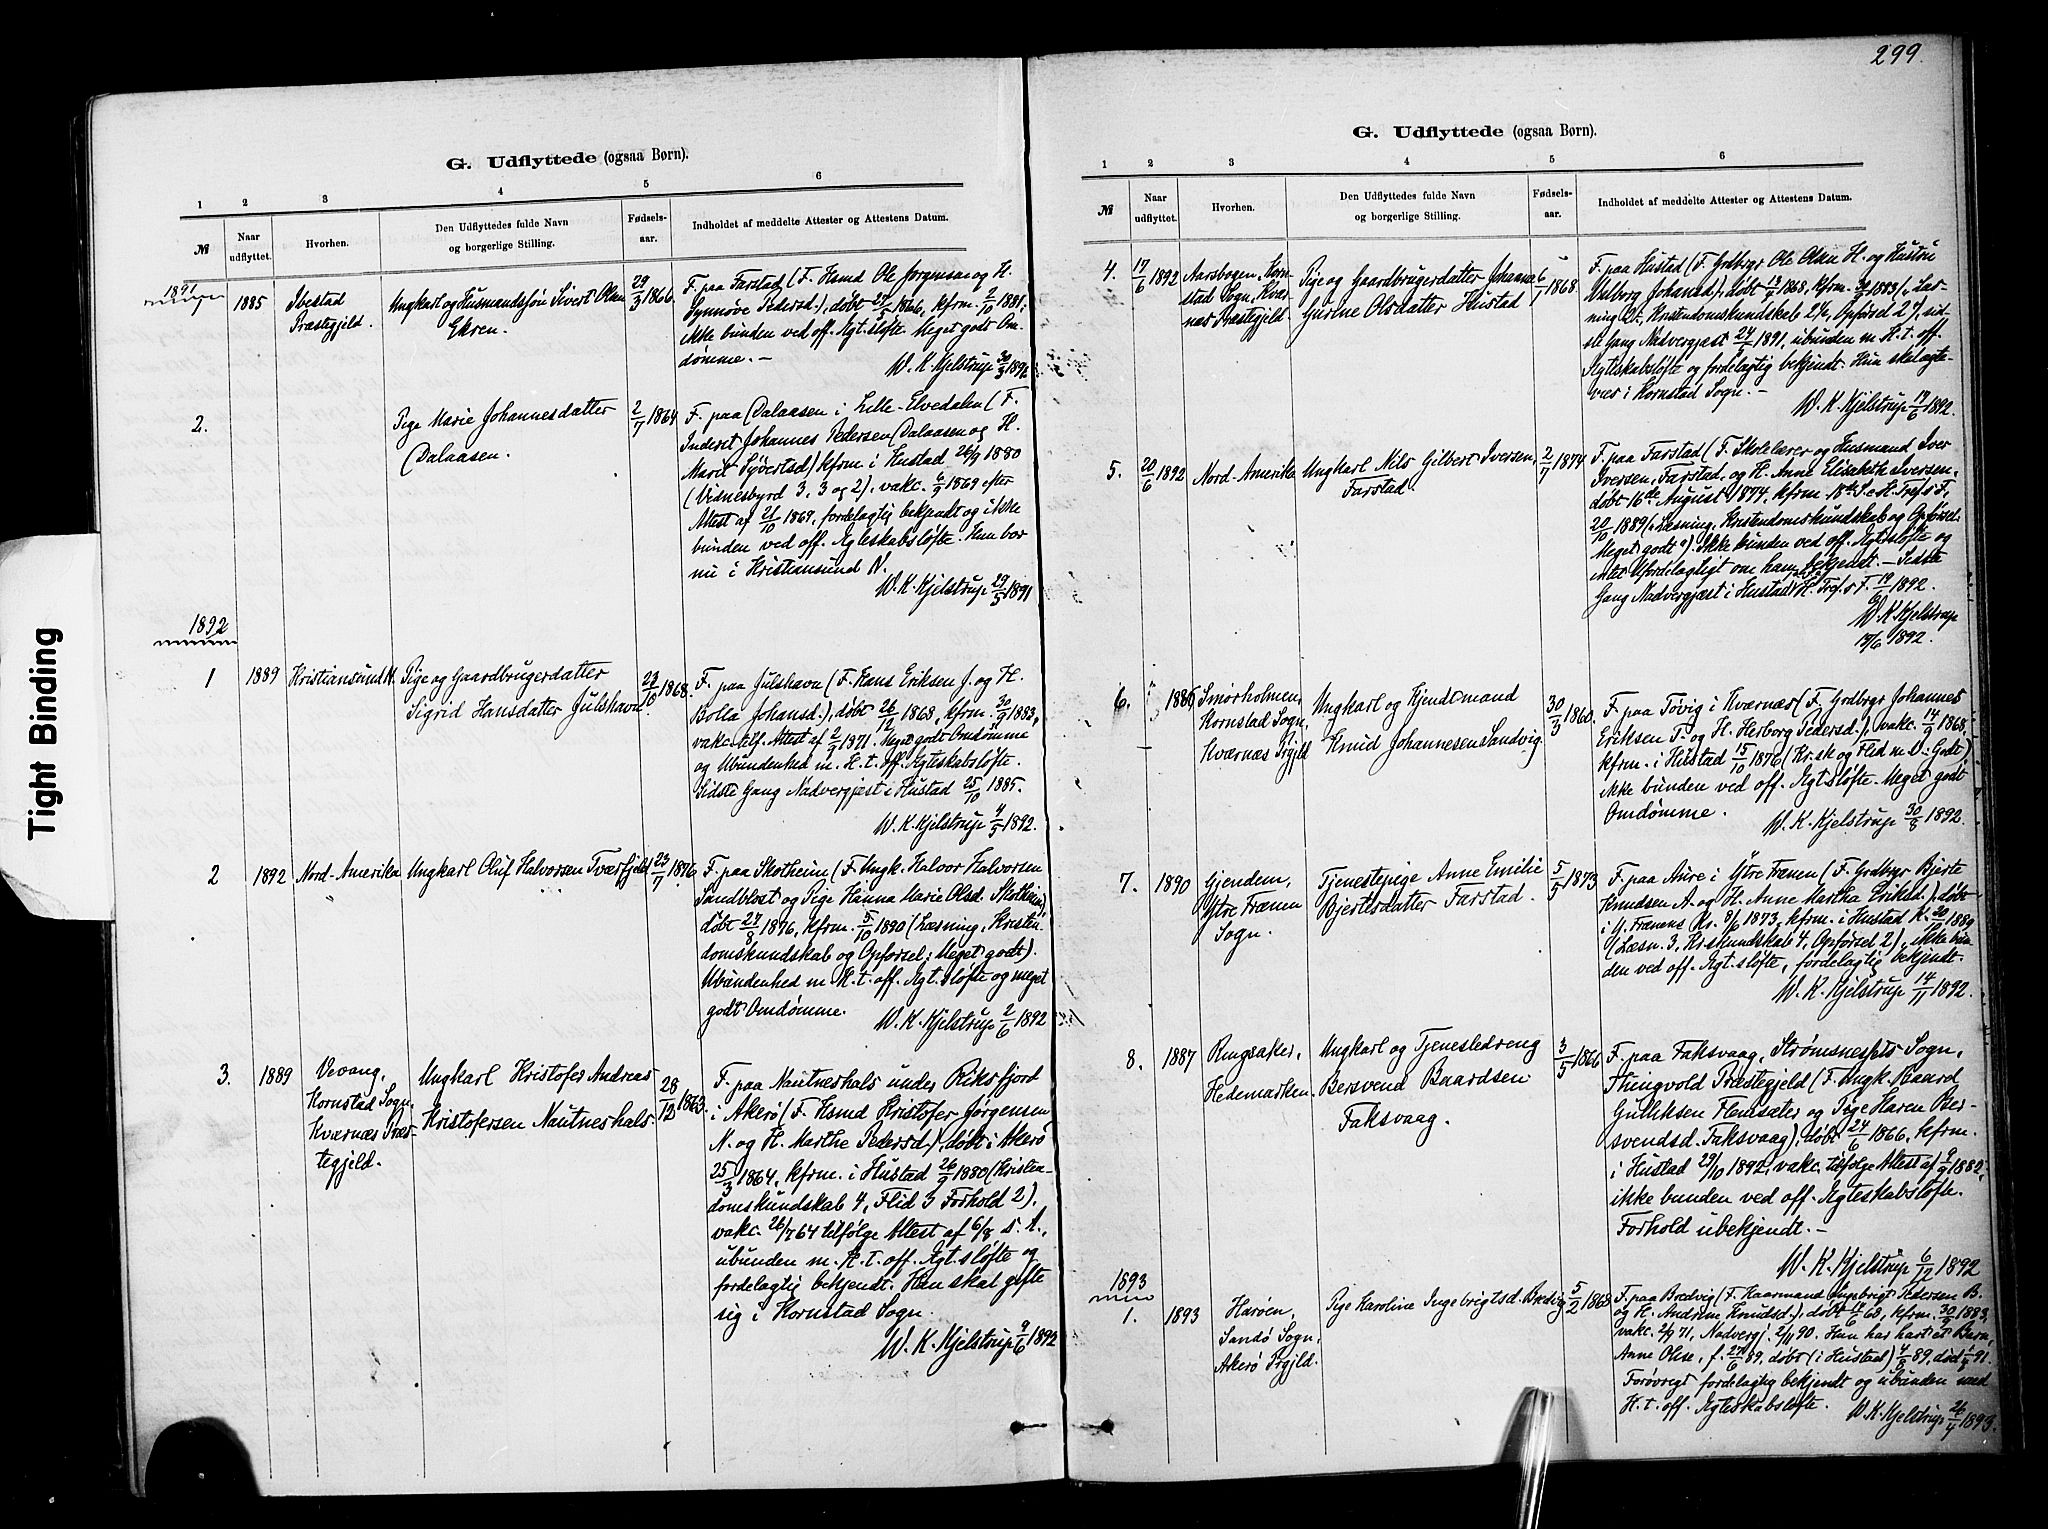 299.
Tight Binding
G. Udflyttede (ogsaa Børn).
1 2 3 4 5 6
№
Naar udflyttet.
Hvorhen.
Den Udflyttedes fulde Navn
og borgerlige Stilling.
Fødsels-
aar.
Indholdet af meddelte Attester og Attestens Datum.
1891
1
1885
Ibestad
Præstegjeld.
Ungkarl og Husmandssøn Sivert Olsen
Ekren.
29/3 1866
F. paa Farstad (F. Hsmd Ole Jørgensen og H.
Synnøve Pedersd.), døbt 29/5 1866, kfrm. 2/10 1881,
ikke bunden ved off. Ægt.sløfte. Meget godt Om-
dømme. —
W. K. Kjelstrup 30/3 1891
2.
Pige Marie Johannesdatter
Dalaasen.
2/7 1864
F. paa Dalaasen i Lille-Elvedalen (F.
Inderst Johannes Pedersen Dalaasen og H.
Marit Syvertsd) kfrm. i Hustad 26/9 1880
(Vidnesbyrd 3, 3 og 2), vakc. 6/9 1869 efter
Attest af 21/10 1869, fordelagtig bekjendt og ikke
bunden ved off. Ægteskabsløfte. Hun bor
nu i Kristiansund N.
W. K. Kjelstrup 29/5 1891
1892
1
1889
Kristiansund N.
Pige og Gaardbrugerdatter
Sigrid Hansdatter Julshavn
1868.
F. paa Julshavn (F. Hans Eriksen J. og H.
Bolla Johansd.), døbt 26/12 1868, kfrm. 30/9 1883,
vakc. tilf. Attest af 2/9 1871. Meget godt Omdømme
og Ubundenhed m. H. t. off. Ægteskabsløfte.
Sidste Gang Nadvergjest i Hustad 25/10 1885.
W. K. Kjelstrup 4/5 1892.
2
1892
Nord-Amerika
Ungkarl Oluf Halvorsen Tverfjeld
23/7 1876.
F. paa Skotheim (F. Ungk. Halvor Halvorsen
Sandblost og Pige Hanna Marie Olsd. Skotheim),
døbt 27/8 1876, kfrm. 5/10 1890 (Læsning, Kristen-
domskundskab og Opførsel: Meget godt).
Ubundenhed m. H. t. off. Ægt.sløfte og meget
godt Omdømme.
W. K. Kjelstrup 2/6 1892
3.
1889
Vevang,
Kornstad Sogn,
Kværnæs Præs-
tegjeld.
Ungkarl Kristofer Andreas
Kristofersen Nautneshals.
28/12 1863.
F. paa Nautneshals under Riksfjord
i Akerø (F. Hsmd Kristofer Jørgensen
N. og H. Marthe Pedersd), døbt i Akerø
25/3 1864, kfrm. i Hustad 26/9 1880 (Kristen-
domskundskab 4, Flid 3 Forhold 2),
vakc. 26/7 64 tilfølge Attest af 6/8 s. A.,
ubunden m. H. t. off. Ægt.sløfte og
fordelagtig bekjendt. Han skal gifte
sig i Kornstad Sogn.
W. K. Kjelstrup 9/6 1892
G. Udflyttede (ogsaa Børn).
1 2 3 4 5 6
№
Naar
udflyttet.
Hvorhen.
Den Udflyttedes fulde Navn
og borgerlige Stilling.
Fødsels-
aar.
Indholdet af meddelte Attester og Attestens Datum.
4.
17/6 1892
Aarsbogen, Korn-
stad Sogn, Kvær-
næs Præstegjeld.
Pige og Gaardbrugerdatter Johanna
Gurine Olsdatter Hustad
6/1 1868
F. paa Hustad (F. Grdbrgr Ole Olsen H. og Hustru
Valborg Johansd.), døbt 1868, kfrm. 30/9 1883 (Læs-
ning 2, Kristendomskundskab 2½, Opførsel 2), sid-
ste Gang Nadvergjest 1891, ubunden m. H. t. off.
Ægteskabsløfte og fordelagtig bekjendt. Hun skal ægte-
vies i Kornstad Sogn. —
W. K. Kjelstrup 17/6 1892.
5.
20/6 1892
Nord-Amerika
Ungkarl Nils Gilbert Iversen,
Farstad.
2/7 1874
F. paa Farstad (F. Skolelærer og Husmand Iver
Iversen, Farstad, og H. Anne Elisabeth Iversen,
døbt 16de August 1874, kfrm. 18de S. e. H. Tref.s F.,
20/10 1889 (Læsning, Kristendomskundskab og Opførsel:
Meget godt). Ikke bunden ved off. Ægt.sløfte og
intet Ufordelagtigt om ham bekjendt. — Sidste
Gang Nadvergjest i Hustad H. Tref.s F. 1892.
W. K. Kjelstrup
1892.
6.
1886
Smorholmen,
Kornstad Sogn,
Kværnæs Prgjld
Ungkarl og Kjendtmand
Knud Johannesen Sandvig.
30/3 1860.
F. paa Tøvig i Kværnæs (F. Grdbrgr Johannes
Eriksen T. og H. Herborg Pedersd.), vakc. 14/9 1868,
kfrm. i Hustad 15/10 1876 (Kr.sk og Flid m. V.: Godt)
ikke bunden ved off. Ægt.sløfte. Meget godt
Omdømme.
W. K. Kjelstrup 30/8 1892.
7.
1890
Gjendem,
Ytre Frænen
Sogn.
Tjenestepige Anne Emilie
Bjertesdatter Farstad.
5/5 1873
F. paa Aure i Ytre Frænen (F. Grdbrgr Bjerte
Knudsen A. og H. Anne Martha Eriksd.), døbt
i Y. Frænens K. 8/6 1873, kfrm. i Hustad K. 20/10 1889
(Læsn. 3, Kr.skundskab 4, Opførsel 2), ikke bun-
den ved off. Ægt.sløfte, fordelagtig bekjendt.
W. K. Kjelstrup 14/11 1892.
8.
1887
Ringsaker,
Hedemarken.
Ungkarl og Tjenestedreng
Bersvend Baardsen
Faksvaag.
3/5 1866
F. paa Faksvaag, Strømsnessets Sogn,
Thingvold Præstegjeld (F. Ungk. Baard
Gulliksen Flemsæter og Pige Karen Ber-
svendsd. Faksvaag), døbt 24/6 1866, kfrm.
i Hustad 29/10 1892, vakc. tilfølge Attest af 9/9 1882,
ikke bunden ved off. Ægteskabsløfte.
Forhold ubekjendt. —
W. K. Kjelstrup 6/12 1892
1893
1.
1893
Harøen,
Sandø Sogn,
Akerø Prgjld.
Pige Karoline Ingebrigtsd. Bredvig
5/2 1868
F. paa Bredvig (F. Kaarmand Ingebrigt Pedersen B.
og H. Andrine Knudsd.), døbt 68, kfrm. 30/9 1883,
vakc. 2/9 71, Nadvergj. 2/11 90. Hun har havt et Barn,
Anne Olise, f. 27/6 89, døbt (i Hustad) 4/8 89, død 91.
Forøvrigt fordelagtig bekjendt og ubunden med
H. t. off. Ægteskabsløfte.
W. K. Kjelstrup 26/4 1893.